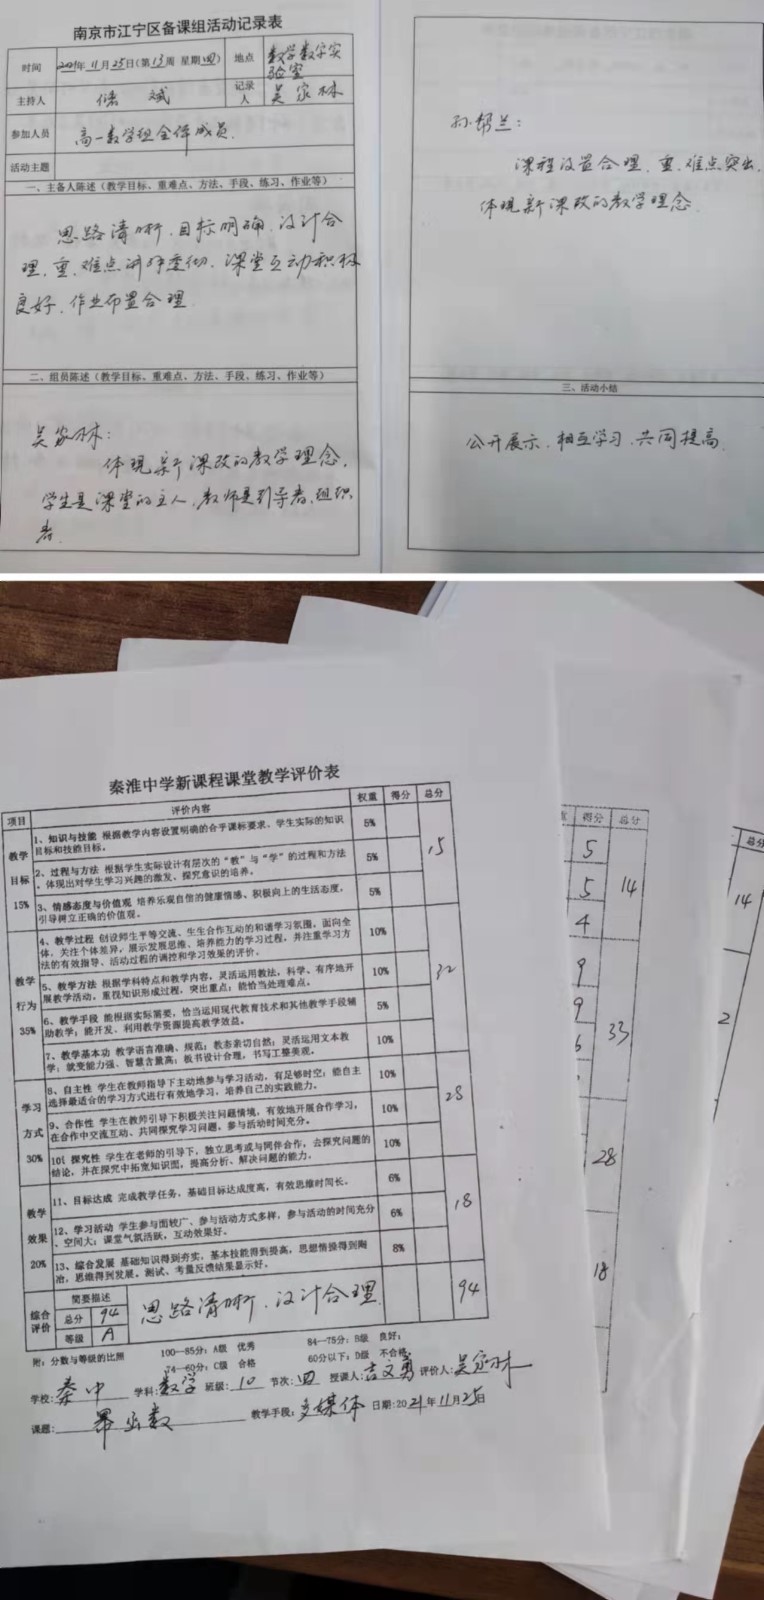 南京市江宁区备课组活动记录表
时间 2021年11月25日(第13周 星期四) 地点 数学数字实验室
主持人 斌 记录人 吴家林
参加人员 高一数学组全体成员.
活动主题
一、主备人陈述（教学目标、重难点、方法、手段、练习、作业等）
思路清晰，目标明确，设计合
理，重、难点讲评透彻，课堂互动积极
良好，作业布置合理
二、组员陈述（教学目标、重难点、方法、手段、练习、作业等）
吴家林：
体现新课改的教学理念，
学生是课堂的主人，教师是引导者、组织
者.
孙帮兰：
课程设置合理，重、难点突出，
体现新课改的教学理念.
三、活动小结
公开展示，相互学习，共同提高.
秦淮中学新课程课堂教学评价表
项目 评价内容 权重 得分 总分
教学目标 15%
1、知识与技能 根据教学内容设置明确的合乎课标要求、学生实际的知识
目标和技能目标。 5%
2、过程与方法 根据学生实际设计有层次的“教”与“学”的过程和方法
，体现出对学生学习兴趣的激发、探究意识的培养。 5%
3、情感态度与价值观 培养乐观自信的健康情感、积极向上的生活态度，
引导树立正确的价值观。 5%
15
教学行为 35%
4、教学过程 创设师生平等交流、生生合作互动的和谐学习氛围，面向全
体，关注个体差异，展示发展思维、培养能力的学习过程，并注重学习方
法的有效指导、活动过程的调控和学习效果的评价。 10%
5、教学方法 根据学科特点和教学内容，灵活运用教法，科学、有序地开
展教学活动，重视知识形成过程，突出重点；能恰当处理难点。 10%
6、教学手段 能根据实际需要，恰当运用现代教育技术和其他教学手段辅
助教学；能开发、利用教学资源提高教学效益。 5%
7、教学基本功 教学语言准确、规范；教态亲切自然；灵活运用文本教
学；就变能力强、智慧含量高；板书设计合理，书写工整美观。 10%
32
学习方式 30%
8、自主性 学生在教师指导下主动地参与学习活动，有足够时空；能自主
选择最适合的学习方式进行有效地学习，培养自己的实践能力。 10%
9、合作性 学生在教师引导下积极关注问题情境，有效地开展合作学习，
在合作中交流互动、共同探究学习问题，参与活动时间充分。 10%
10、探究性 学生在老师的引导下，独立思考或与同伴合作，去探究问题的
结论，并在探究中拓宽知识面，提高分析、解决问题的能力。 10%
28
教学效果 20%
11、目标达成 完成教学任务，基础目标达成度高，有效思维时间长。 6%
12、学习活动 学生参与面较广、参与活动方式多样，参与活动的时间充分
、空间大；课堂气氛活跃，互动效果好。 6%
13、综合发展 基础知识得到夯实，基本技能得到提高，思想情操得到陶
冶，思维得到发展。测试、考量反馈结果显示好。 8%
18
综合评价 简要描述 思路清晰，设计合理. 94
总分 94
等级 A
附：分数与等级的比照 100—85分：A级 优秀 84—75分：B级 良好；
74—60分：C级 合格 60分以下：D级 不合格
学校：秦中 学科：数学 班级：10 节次：四 授课人：吉文勇 评价人：吴家林
课题：幂函数 教学手段：多媒体 日期：2021年11月25日
得分 总分
5
5
4
14
9
9
6
33
28
18
总分
14
2